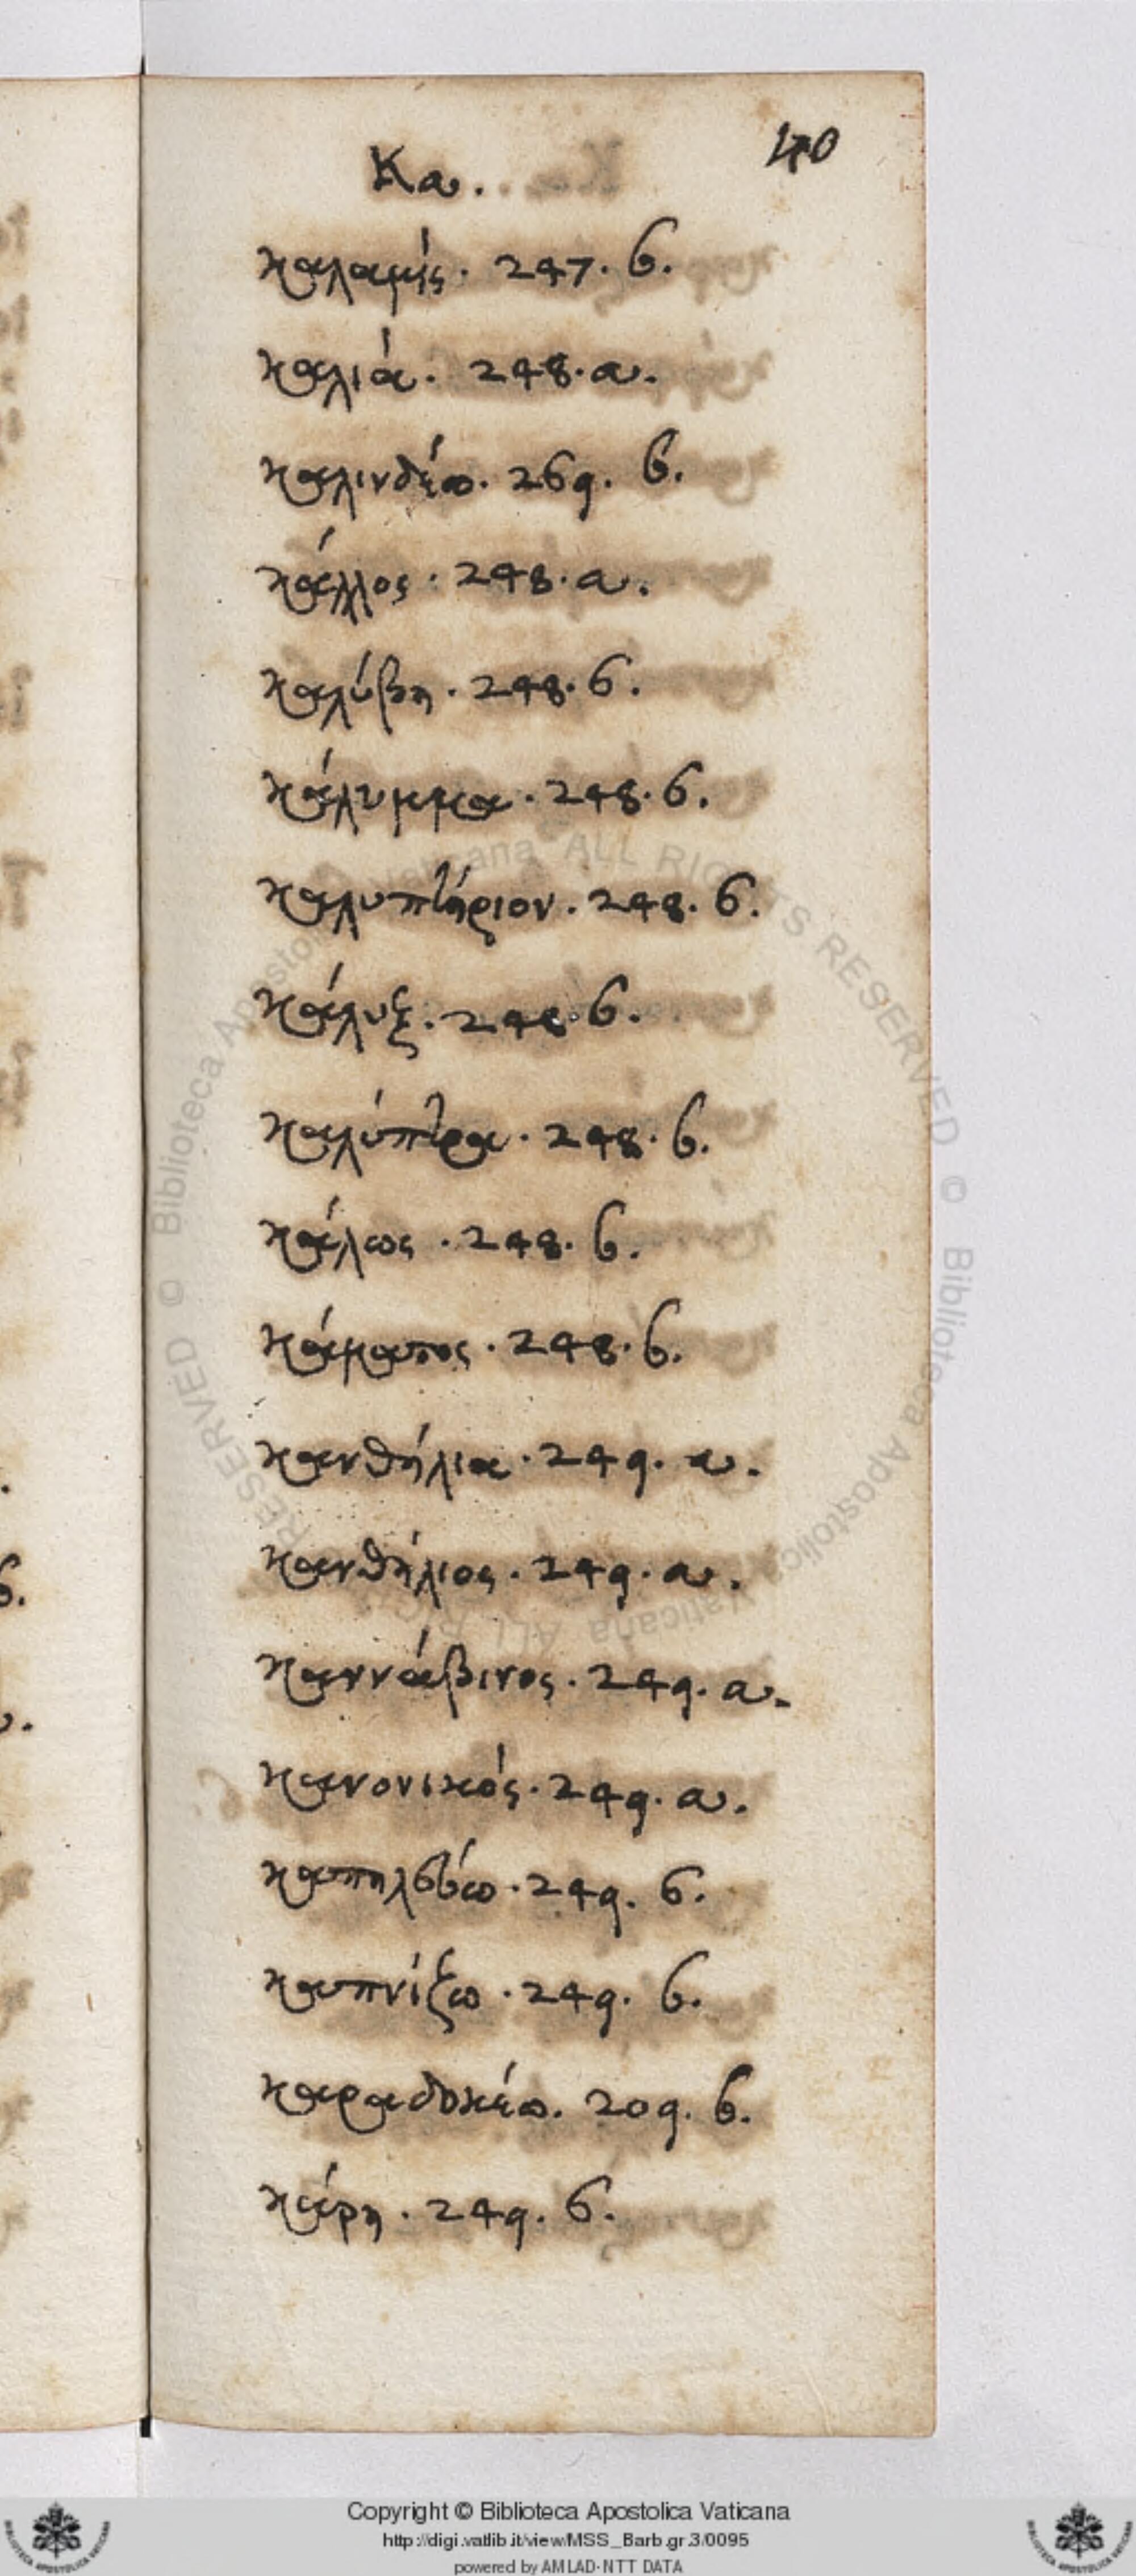 40
Κα.
καλαμίς. 247. b.
καλιά. 248. a.
καλινδέω. 269. b.
κάλλος. 248. a.
καλύβη. 248. b.
κάλυμμα. 248. b.
καλυπτήριον. 248. b.
κάλυξ. 248. b.
καλύπτρα. 248. b.
κάλως. 248. b.
κάματος. 248. b.
κανθήλια. 249. a.
κανθήλιος. 249. a.
κανναβινος. 249. a.
κανονικός. 249. a.
249. b.
καπνίζω. 249. b.
καραδοκέω. 209. b.
κάρη. 249. b.
b.
Copyright © Biblioteca Apostolica Vaticana
http://digi.vatlib.it/view/MSS_Barb.gr.3/0095
powered by AMLAD-NTT DATA
© Biblioteca Apostolica Vaticana ALL RIGHTS RESERVED © Biblioteca Apostolica Vaticana ALL RIGHTS RESERVED